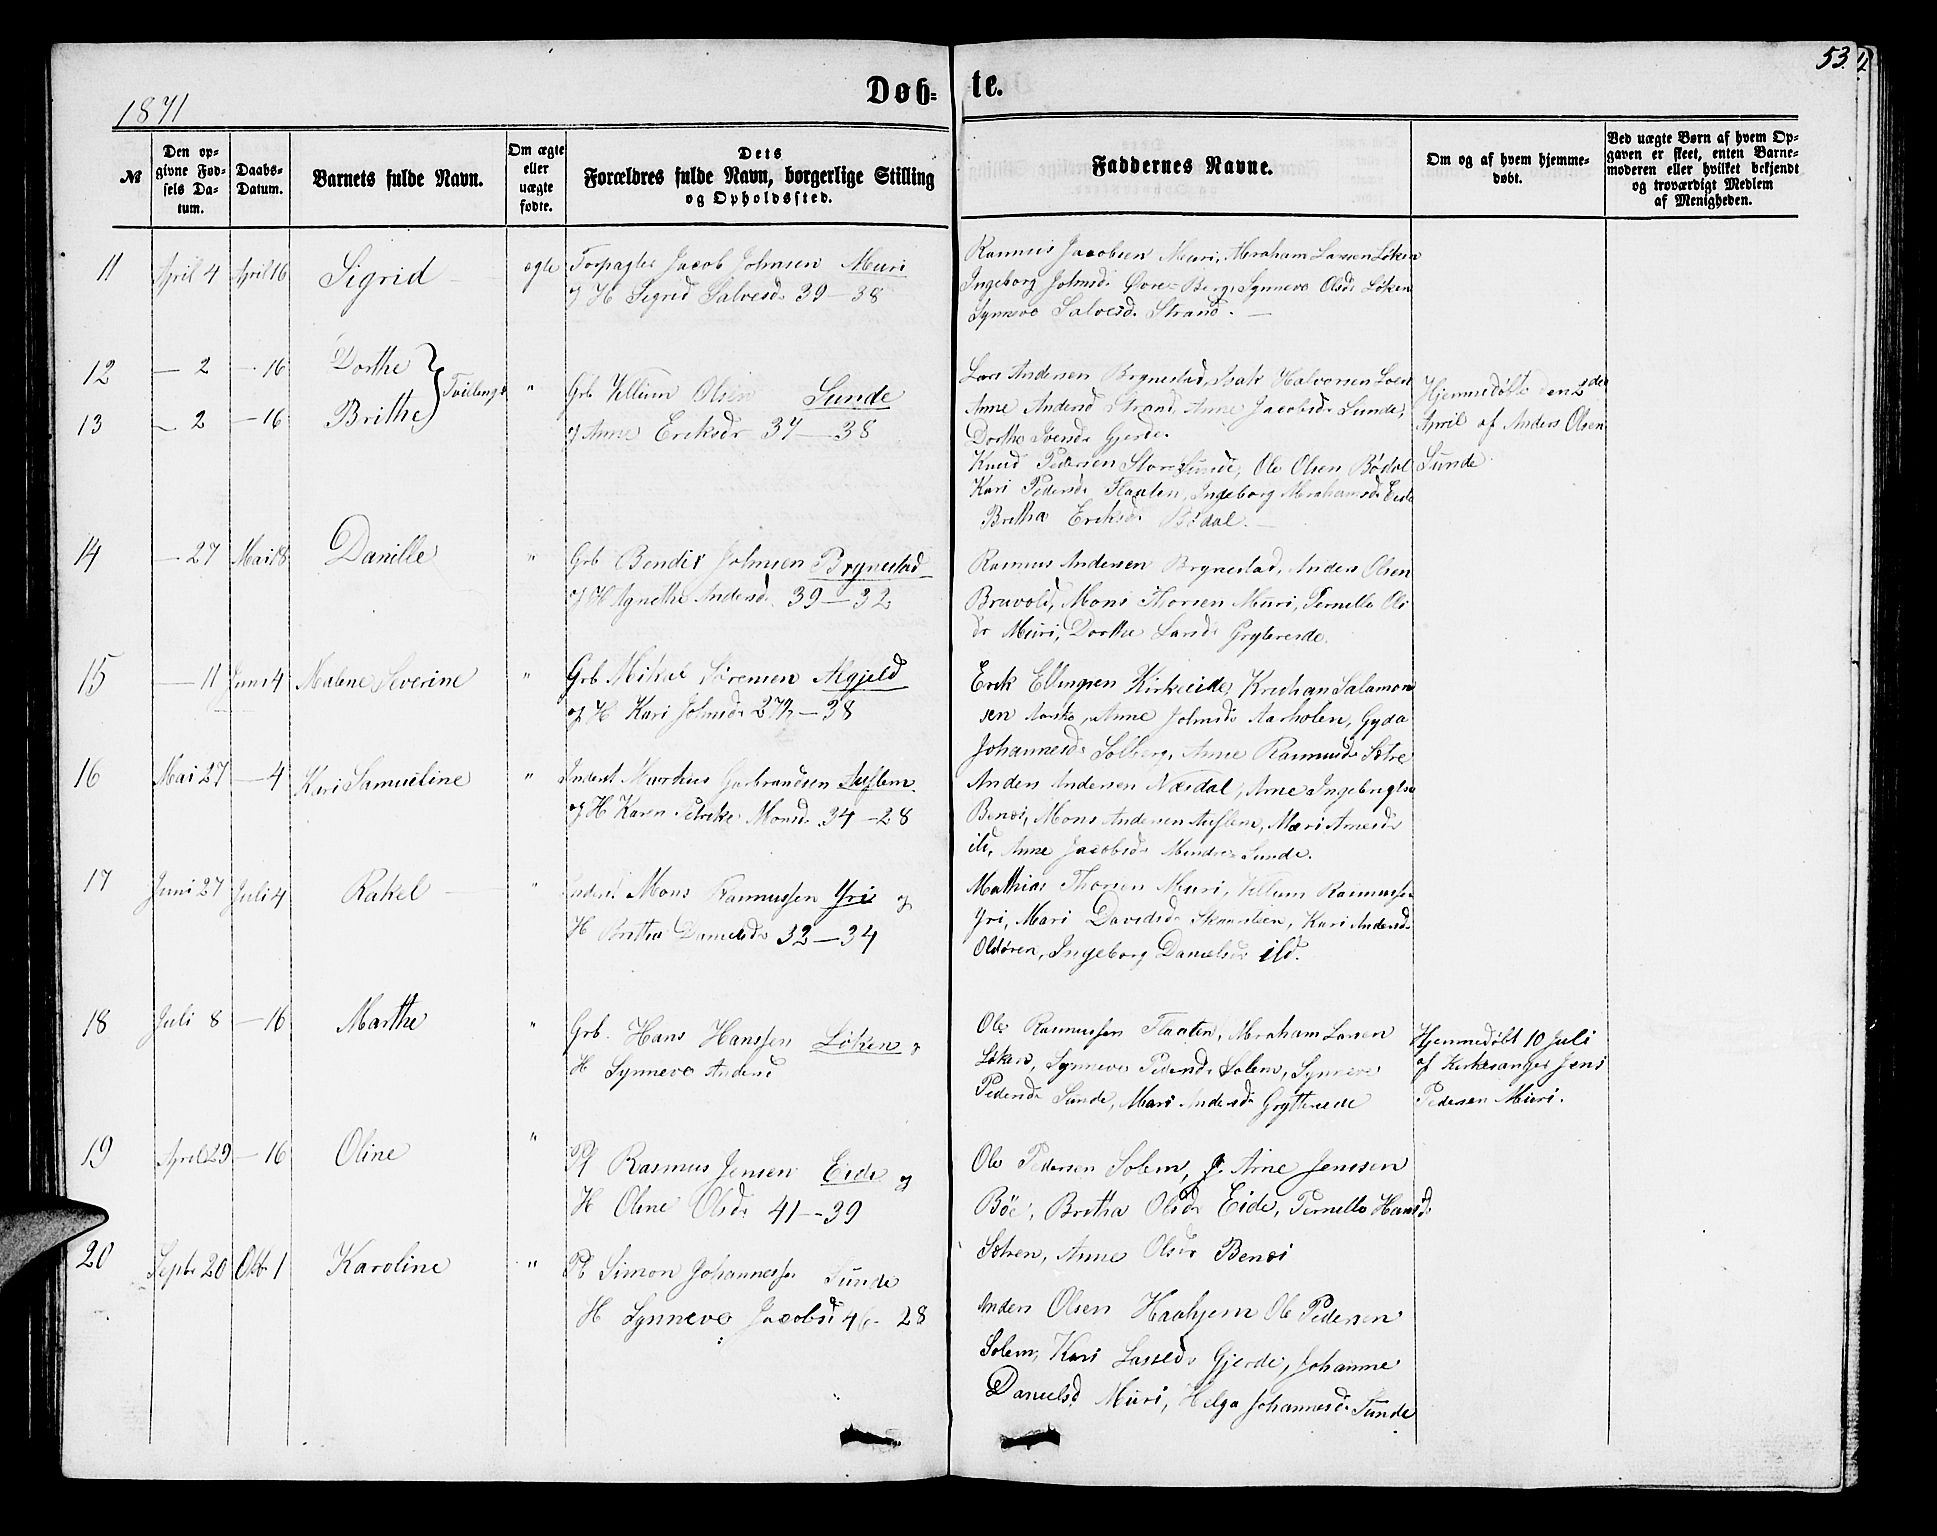 53.
1871
Døb-
te.
№
Den opgivne Fødsels Datum.
Daabs-Datum.
Barnets fulde Navn.
Om ægte eller uægte fødte.
Dets Forældres fulde Navn, borgerlige Stilling og Opholdssted.
Faddernes Navne.
Om og af hvem hjemmedøbt.
Ved uægte Børn af hvem Opgaven er skeet, enten Barnemoderen eller hvilket bekjendt og troværdigt Medlem af Menigheden.
11 April 4 April 16 Sigrid ægte
Jacob Johnsen Muri
og H Sigrid Salvesd. 39 — 38
Rasmus Jacobsen Muri, Abraham Larsen Løken
Ingeborg Johnsd. Øvre-Berg, Synneve Olsd. Løken
Synneve Salvesd. Strand. —
12 — 2 — 16 Dorthe
13 — 2 — 16 Brithe } Tvilinge "
Grb Villum Olsen Sunde
og Anne Eriksdr 37 — 38
Lars Andersen Brynestad, Isak Halvorsen Loen
Anne Andersd Strand, Anne Jacobsdr Sunde,
Dorthe Svendr Gjerde.
Knud Pedersen Store Sunde, Ole Olsen Bødal
Kari Pedersdr Flaaten, Ingeborg Abrahamsdr Eide
Britha Eriksdr Bødal. —
Hjemmedøbte den 2den
April af Anders Olsen
Sunde
14 — 27 Mai 18 Danille "
Grb Bendix Johnsen Brynestad
og H Agnethe Andersd. 39 — 32
Rasmus Andersen Brynestad, Anders Olsen
Bruvold, Mons Thorsen Muri, Pernelle Ols
dr Muri, Dorthe Larsdr Grytereide.
15 — 11 Juni 4 Malene Severine "
Grb Mikal Sørensen Megjeld
og H Kari Johnsdr 27½ — 38
Erik Ellingsen Kirkeeide, Kristian Salamon
sen, Anne Johnsdr Aarholen, Gyda
Johannesdr Solberg, Anne Rasmusdr Sætre
16 Mai 27 — 4 Kari Samueline "
Inderst Markus Gabrielsen Auflem
og H Karen Petrike Monsdr 34 — 28
Anders Andersen Næsdal, Arne Ingebrigtsn
Benæs, Mons Andersen Auflem, Mari Arnesdr
ib., Anne Jacobsdr Mindre-Sunde.
17 Juni 27 Juli 4 Rakel "
Inders. Mons Rasmussen Yri og
H Britha Danielsdr 32 — 34
Mathias Thorsen Muri, Villum Rasmussen
Yri, Mari Davidsdr Skaarsteen, Kari Andersdr
Oldøren, Ingeborg Danielsdr ibd.
18 Juli 8 — 16 Marthe "
Grb. Hans Hanssen Løken og
H Synneve Andersd
Ole Rasmussen Flaaten, Abraham Larsen
Løken, Synneve Pedersdr Solem, Synneve
Pedersdr Sunde, Mari Andersdr Grytereide
Hjemmedøbt 10 Juli
af Kirkesanger Jens
Pedersen Muri.
19 April 29 — 16 Oline "
Pf Rasmus Jensen Eide og
H Oline Olsdr 41 — 39
Ole Pedersen Solem, Arne Jenssen
Bøe, Britha Olsdr Eide, Pernelle Hansdr
Sætren, Anne Olsdr Benæs
20 Septr 20 Oktr 1 Karoline "
Simon Johannessen Sunde
H Synneve Jacobsd 46 28
Anders Olsen Haahjem Ole Pedersen
Solem, Kari Lassedr Gjerde, Johanne
Danielsd. Muri, Helga Johannesdr Sunde